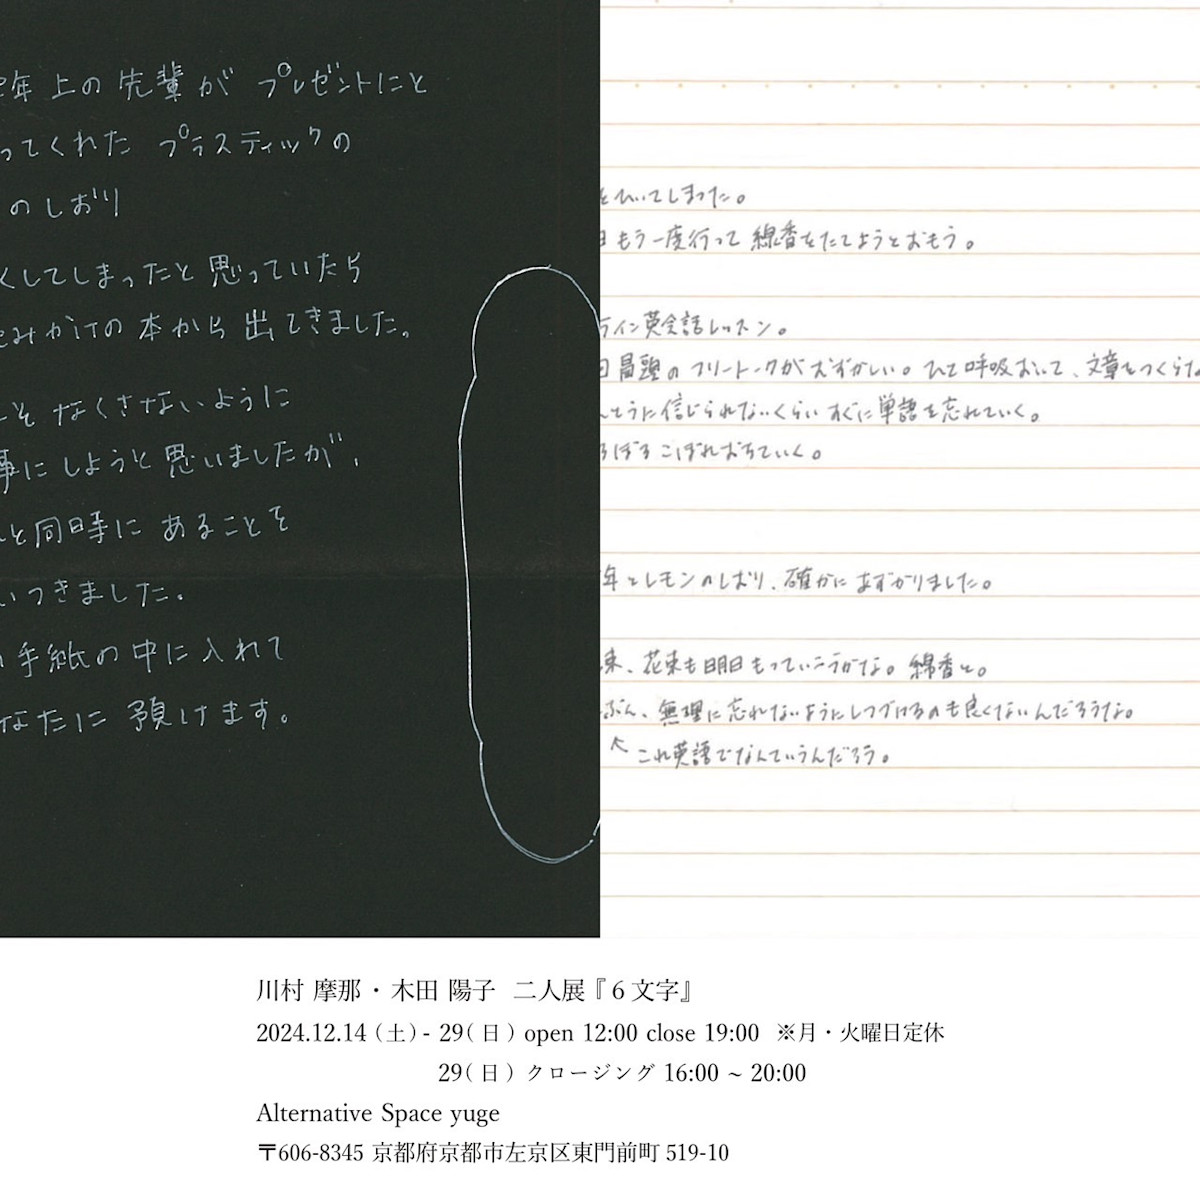 年上の先輩が プレゼントにと
ってくれた プラスティックの
のしおり
くしてしまったと思っていたら
みかけの本から出てきました。
なくさないように
事にしようと思いましたが、
と同時に あることを
いつきました。
手紙の中に入れて
なたに 預けます。
をひいてしまった。
もう一度行って 線香をたてようとおもう。
ライン英会話レッスン。
冒頭のフリートークがむずかしい。ひと呼吸おいて、文章をつくらな
んとうに信じられないくらいすぐに単語を忘れていく。
ろぼろこぼれおちていく。
年とレモンのしおり、確かにあずかりました。
束、花束も明日もっていこうかな。線香と。
ぶん、無理に忘れないようにしつづけるのも良くないんだろうな。
これ英語でなんていうんだろう。
川村 摩那・木田 陽子 二人展『6文字』
2024.12.14（土）- 29（日）open 12:00 close 19:00 ※月・火曜日定休
29（日）クロージング 16:00 ~ 20:00
Alternative Space yuge
〒606-8345 京都府京都市左京区東門前町 519-10